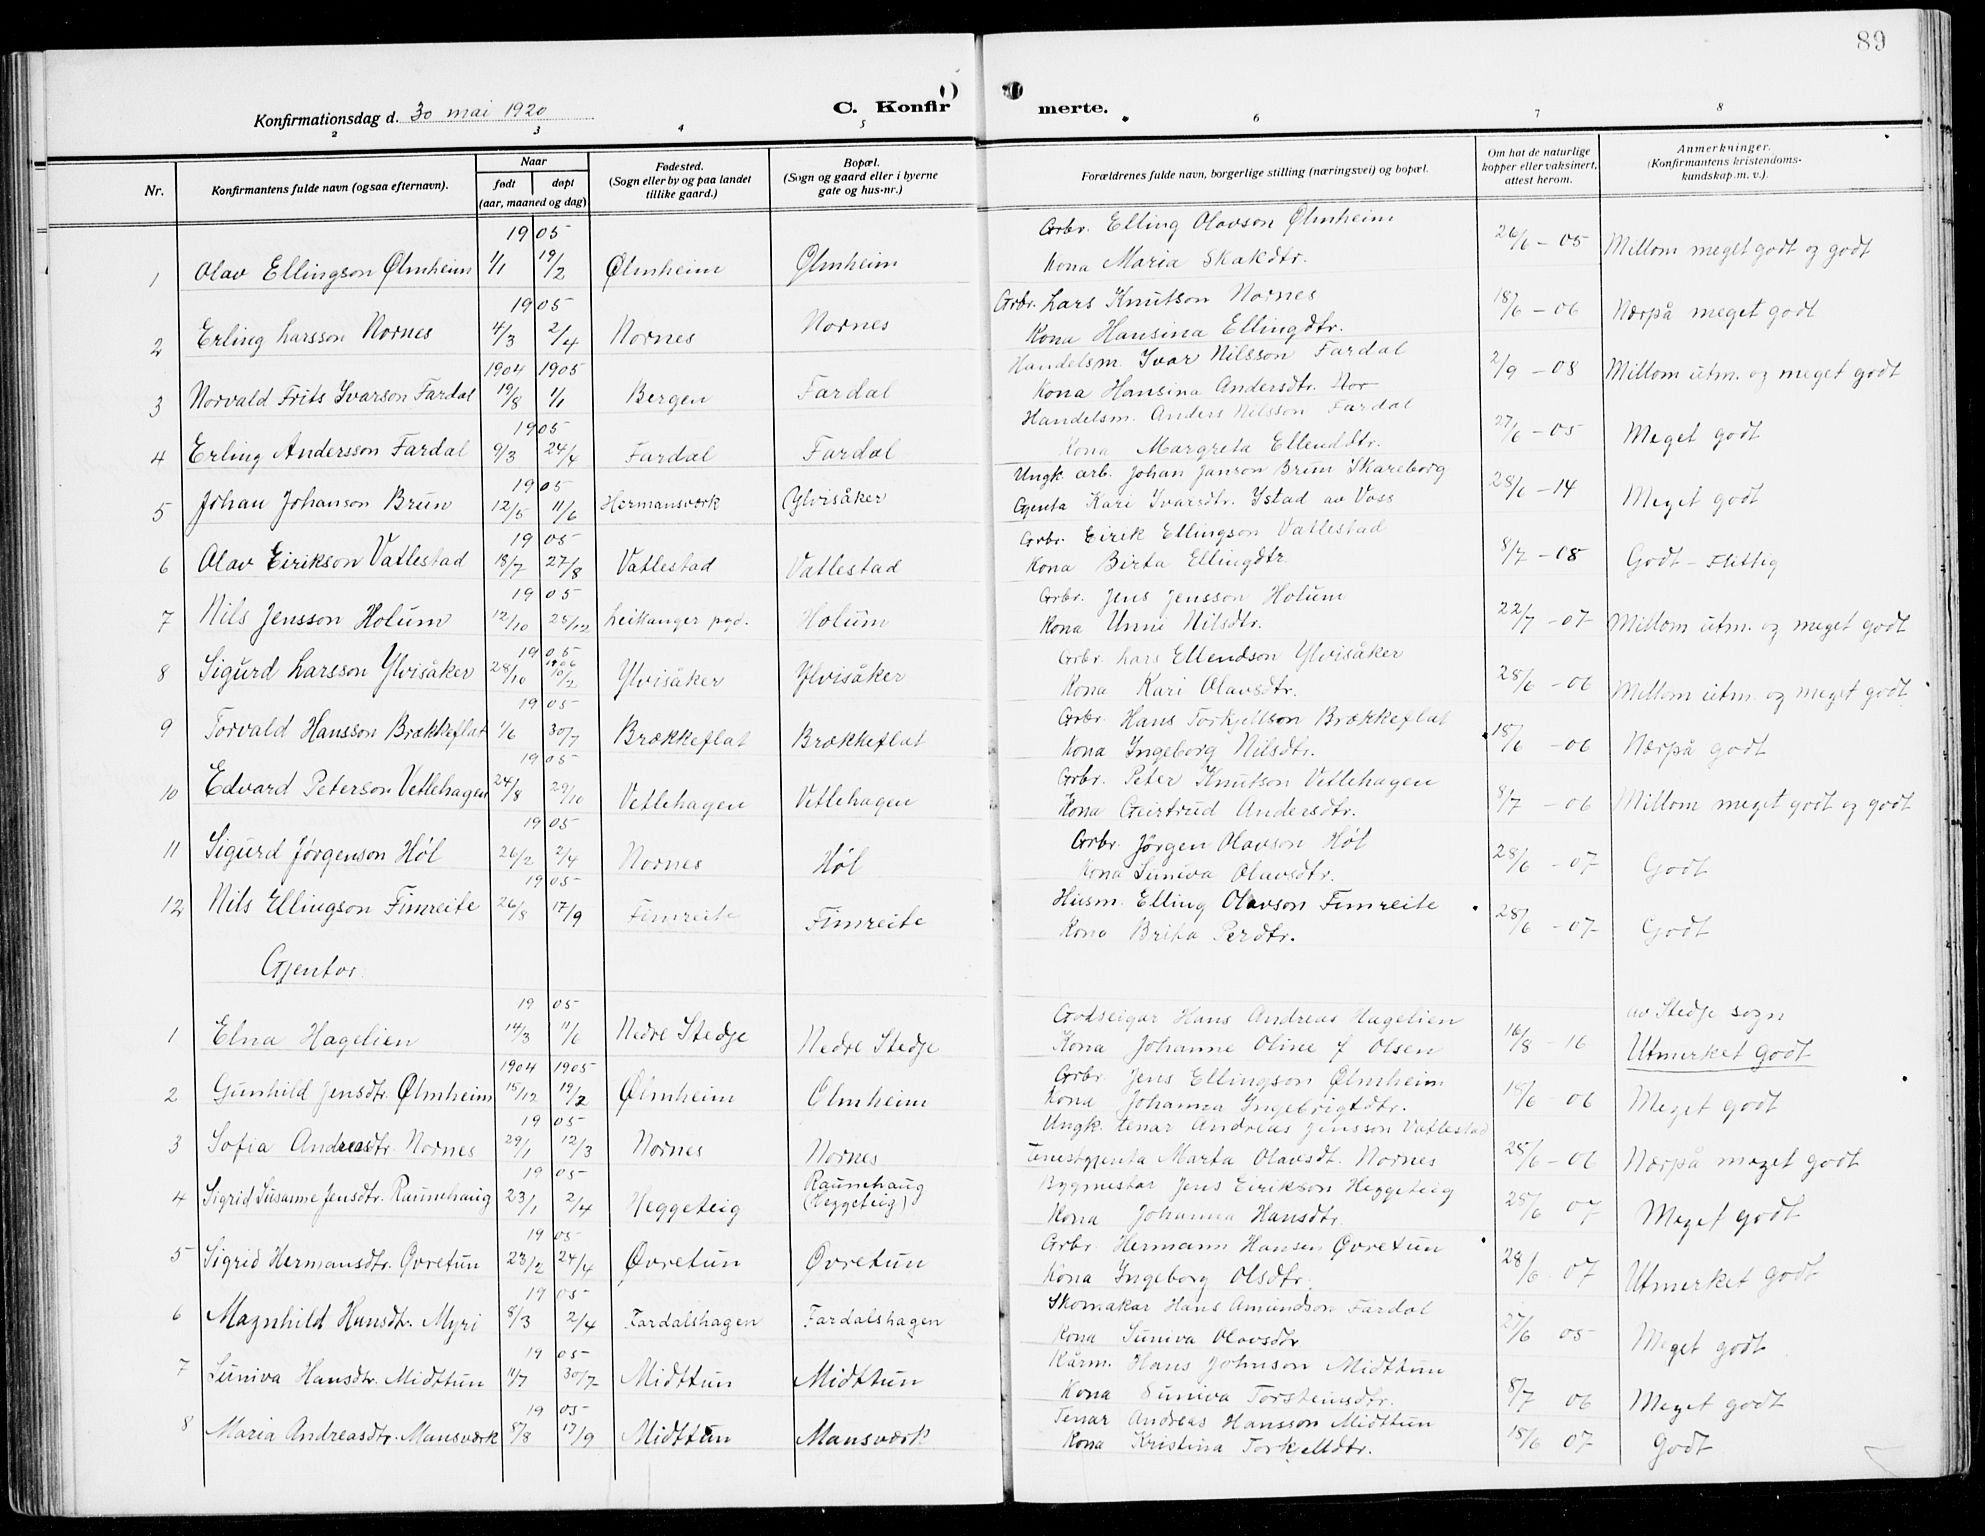 89
Konfirmationsdag d. 30 mai 1920
C. Konfir merte.
2 3 4 5 6 7 8
Nr.
Konfirmantens fulde navn (ogsaa efternavn).
Naar
født døpt
(aar, maaned og dag)
Fødested.
(Sogn eller by og paa landet
tillike gaard.)
Bopæl.
(Sogn og gaard eller i byerne
gate og hus-nr.)
Forældrenes fulde navn, borgerlige stilling (næringsvei) og bopæl.
Om hat de naturlige
kopper eller vaksinert,
attest herom.
Anmerkninger.
(Konfirmantens kristendoms-
kundskap m. v.).
19 05 Grbr. Elling Olavson Ølmheim
1 Olav Ellingson Ølmheim 1/1 19/2 Ølmheim Ølmheim Kona Maria Skakdtr. 26/6 - 05 Millom meget godt og godt
19 05 Grbr. Lars Knutson Nornes
2 Erling Larsson Nornes 4/3 2/4 Nornes Nornes Kona Hansina Ellingdtr. 18/6 - 06 Nærpå meget godt
1904 1905 Handelsm. Ivar Nilsson Fardal
3 Norvald Frits Ivarson Fardal 19/8 1/1 Bergen Fardal Kona Hansina Andersdtr. Nor 2/9 - 08 Millom utm. og meget godt
1905 Handelsm. Anders Nilsson Fardal
4 Erling Andersson Fardal 9/3 24/4 Fardal Fardal Kona Margreta Ellenddtr. 27/6 - 05 Meget godt
19 05 Ungk. arb. Johan Janson Brun Skareborg
5 Johan Johanson Brun 12/5 11/6 Hermansverk Ylvisåker Gjenta Kari Ivarsdtr. Ystad av Voss 28/6 - 14 Meget godt
19 05 Grbr. Eirik Ellingson Vatlestad
6 Olav Eirikson Vatlestad 18/7 27/8 Vatlestad Vatlestad Kona Birta Ellingdtr. 8/7 - 08 Godt - Flittig
19 05 Grbr. Jens Jensson Holum
7 Nils Jensson Holum 12/10 25/12 Leikanger pgd. Holum Kona Unni Nilsdtr. 22/7 - 07 Millom utm. og meget godt
19 05 Grbr. Lars Ellendson Ylvisåker
8 Sigurd Larsson Ylvisåker 28/10 1906 10/2 Ylvisåker Ylvisåker Kona Kari Olavsdtr. 28/6 - 06 Millom utm. og meget godt
19 05 Grbr. Hans Torkjellson Brækkeflat
9 Torvald Hansson Brækkeflat 1/6 30/7 Brækkeflat Brækkeflat Kona Ingeborg Nilsdtr. 18/6 - 06 Nærpå godt
19 05 Grbr. Peter Knutson Vetlehagen
10 Edvard Peterson Vetlehagen 24/8 29/10 Vetlehagen Vetlehagen Kona Gurtrud Andersdtr. 8/7 - 06 Millom meget godt og godt
19 05 Grbr. Jörgen Olavson Høl
11 Sigurd Jørgenson Høl 26/2 2/4 Nornes Høl Kona Suniva Olavsdtr. 28/6 - 07 Godt
19 05 Husm. Elling Olavson Fimreite
12 Nils Ellingson Fimreite 26/8 17/9 Fimreite Fimreite Kona Brita Perdtr. 28/6 - 07 Godt
Gjentor.
19 05 Godseigar Hans Andreas Hagelien av Stedje sogn
1 Elna Hagelien 14/3 11/6 Nedre Stedje Nedre Stedje Kona Johanne Oline f Olsen 16/8 - 16 Utmerket godt
1904 1905 Grbr. Jens Ellingson Ølmheim
2 Gunhild Jensdtr. Ølmheim 15/12 19/2 Ølmheim Olmheim Kona Johanna Ingebrigtdtr. 18/6 - 06 Meget godt
19 05 Ungk. tenar Andreas Jensson Vatlestad
3 Sofia Andreasdtr. Nornes 29/1 12/3 Nornes Nornes Tenestgjenta Marta Olavsdt. Nornes 28/6 - 06 Nærpå meget godt
19 05 Raunehaug Bygmestar Jens Eirikson Heggeteig
4 Sigrid Susanne Jensdtr. Raunehaug 23/1 2/4 Heggeteig (Heggeteig) Kona Johanna Hansdtr. 28/6 07 Meget godt
19 05 Grbr. Hermann Hansen Øvretun
5 Sigrid Hermansdtr. Øvretun 23/2 24/4 Øvretun Øvretun Kona Ingeborg Olsdtr. 28/6 07 Utmerket godt
19 05 Skomakar Hans Amundson Fardal
6 Magnhild Hansdtr. Myri 8/3 2/4 Fardalshagen Fardalshagen Kona Suniva Olavsdtr. 27/6 05 Meget godt
19 05 Kårm. Hans Johnson Midttun
7 Suniva Hansdtr. Midttun 11/7 30/7 Midttun Midttun Kona Suniva Torsteinsdtr. 8/7 06 Meget godt
19 05 Tenar Andreas Hansson Midttun
8 Maria Andreasdtr. Mansverk 8/8 17/9 Midttun Mansværk Kona Kristina Torkelldtr. 18/6 07 Godt